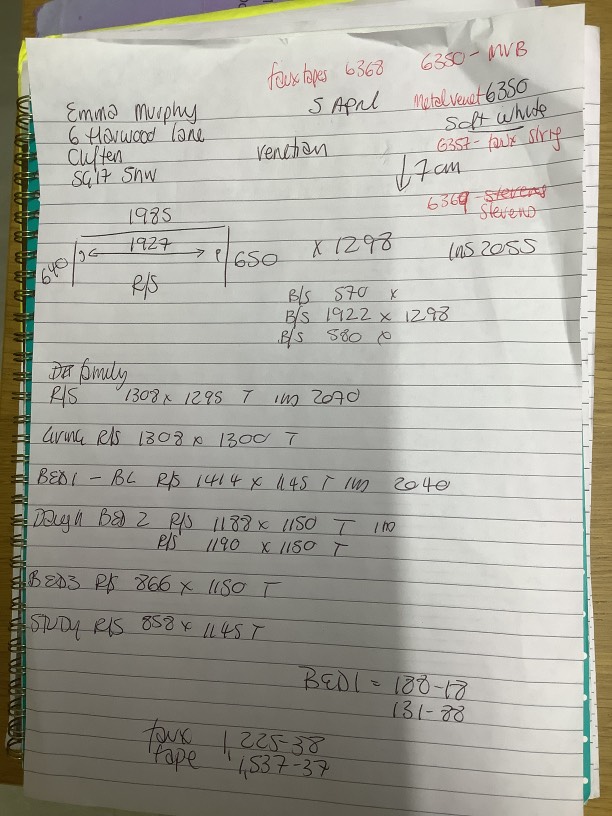 faux tapes 6368 6350 - MVB
Emma Murphy 5 April Metal venet 6350
6 Harwood Lane Soft White
Clifton venetian 6357 - faux string
SG17 5HW ↓ 7cm
6369 stevens
Stevens
1985
640 1927 650 x 1298 ins 2055
R/S
B/S 570 x
B/S 1922 x 1298
B/S 580 x
family
R/S 1308 x 1295 T ins 2070
Living R/S 1308 x 1300 T
BED1 - BL R/S 1414 x 1145 T ins 2040
Daugh BED 2 R/S 1188 x 1150 T
R/S 1190 x 1150 T
BED3 R/S 866 x 1150 T
STUDY R/S 858 x 1145 T
BED1 = 188-18
131-88
faux 1,225-38
tape 1,537-37